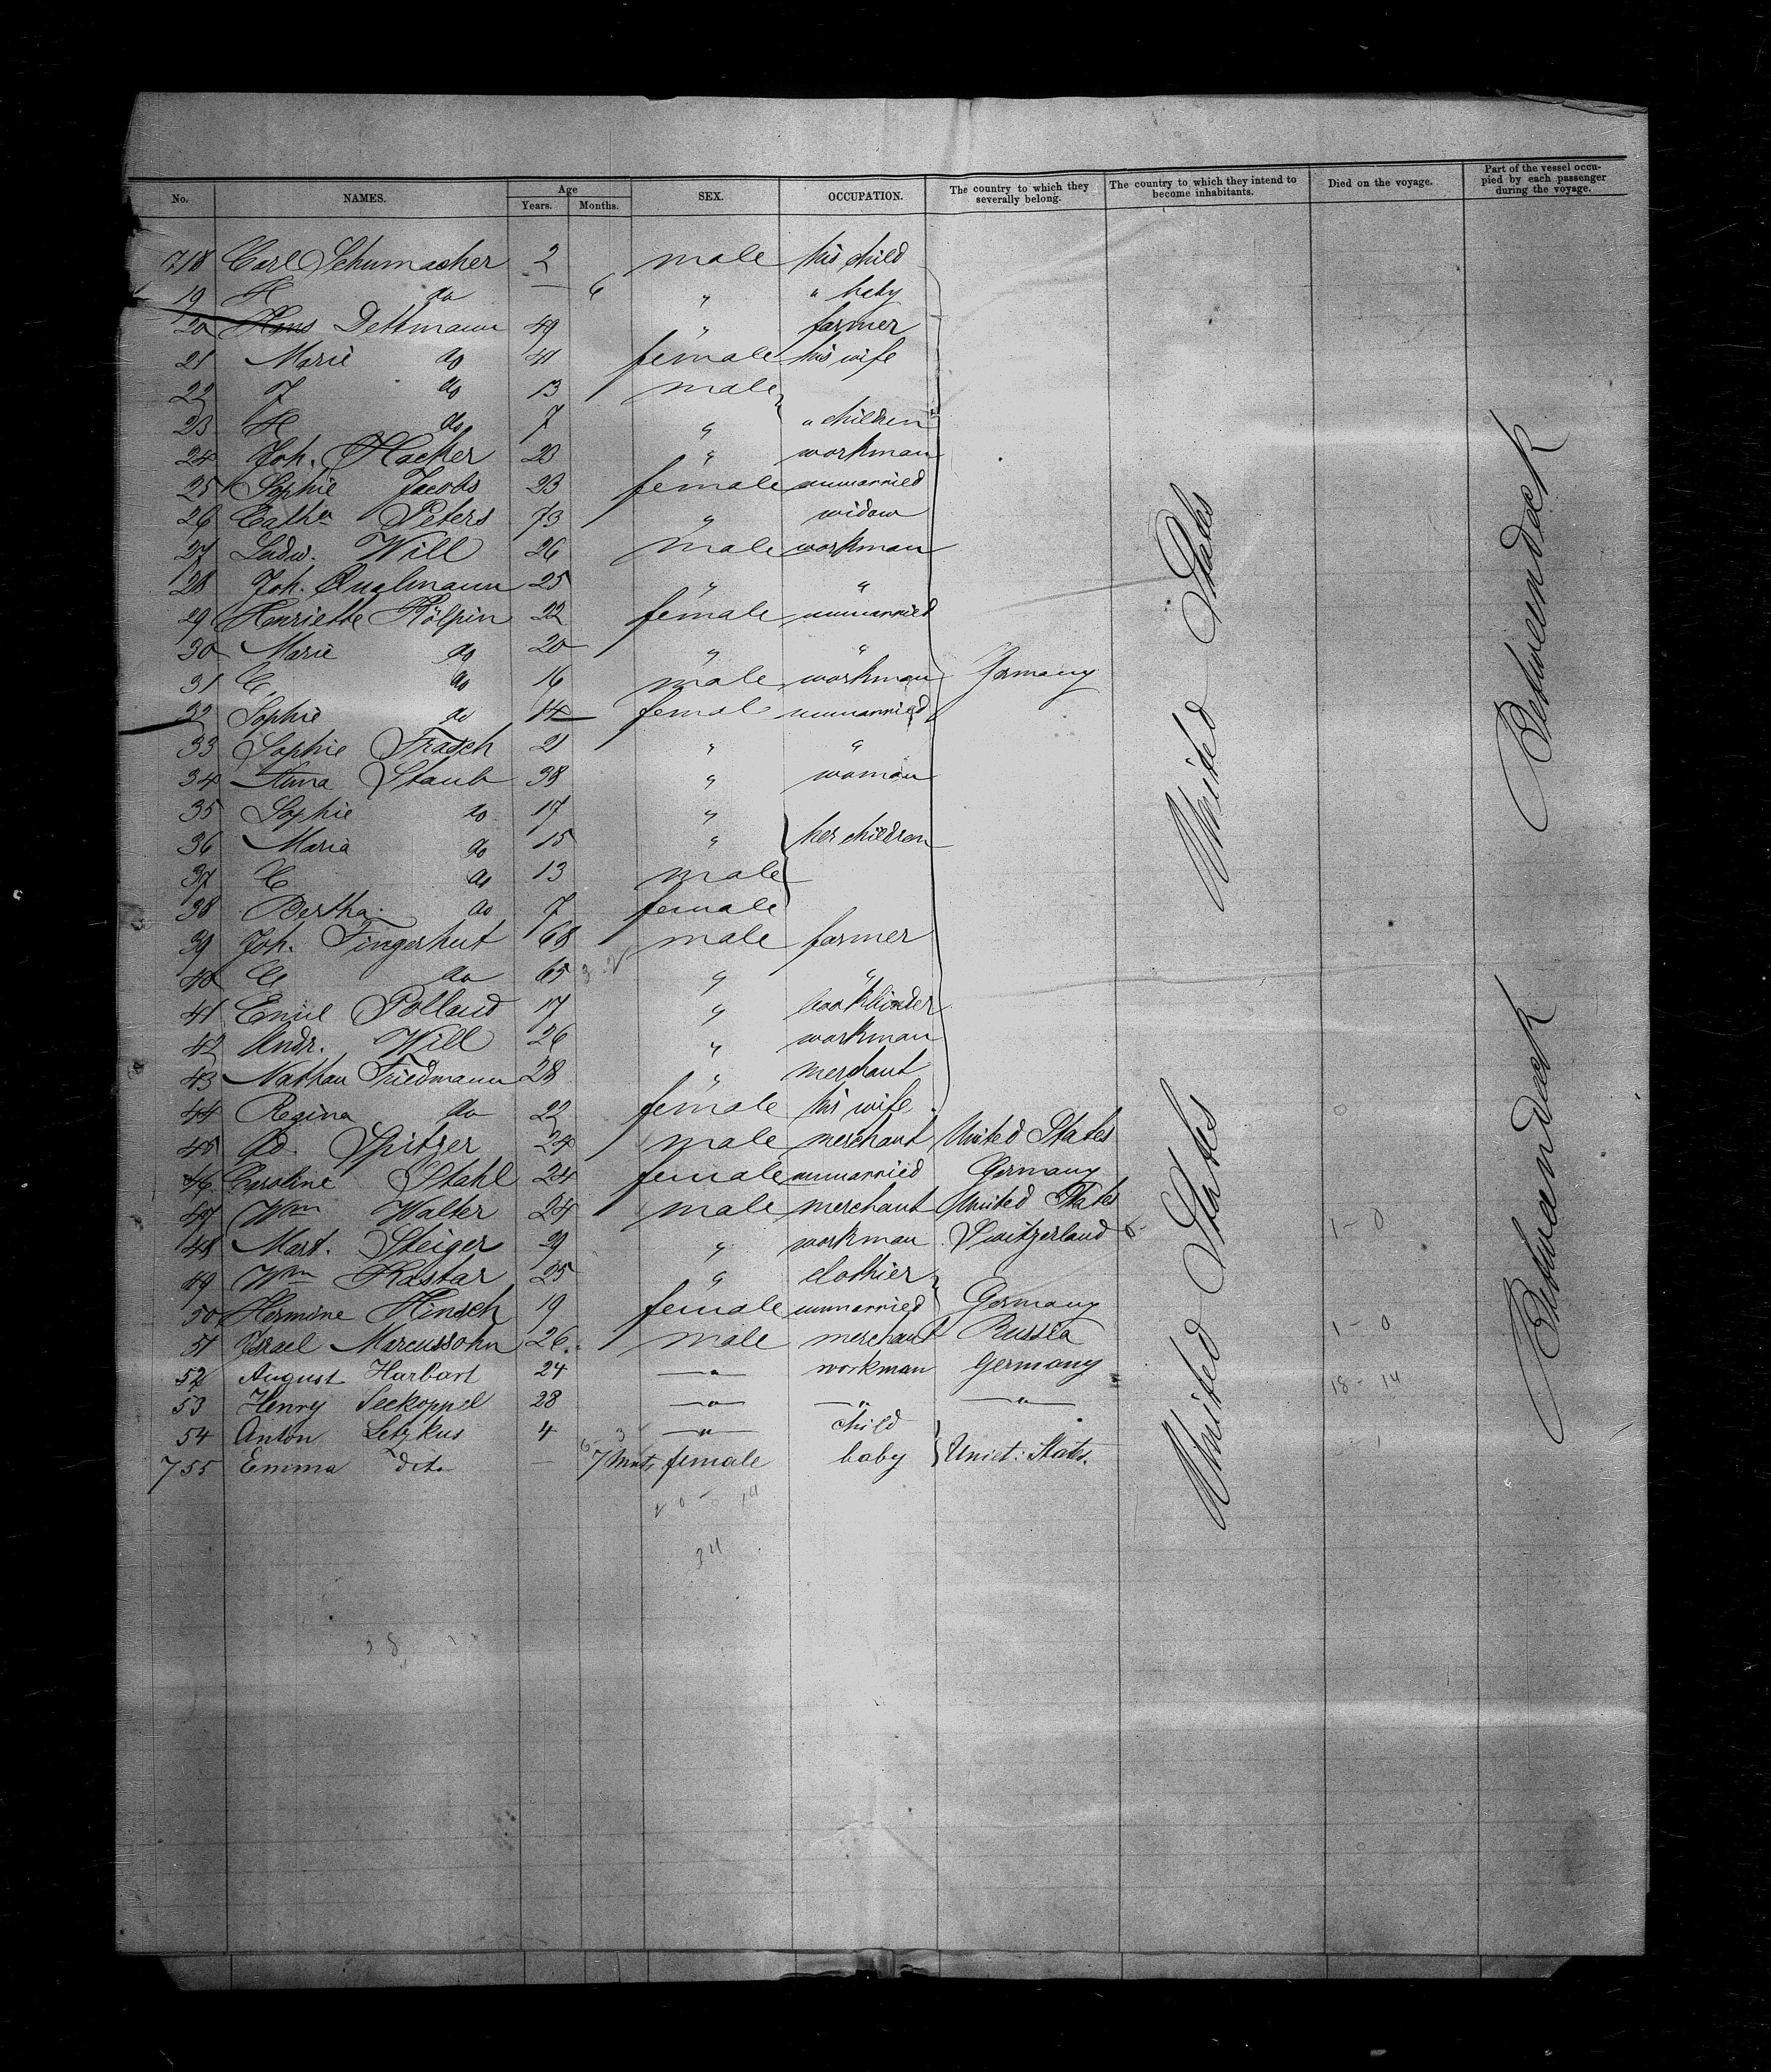 No. NAMES. Age Years. Months. SEX. OCCUPATION. The country to which they severally belong. The country to which they intend to become inhabitants. Died on the voyage. Part of the vessel occupied by each passenger during the voyage.
718 Carl Schumacher 2 male his child
19 H do — 6 " " baby
20 Hans Dettmann 49 " farmer
21 Marie do 41 female his wife
22 J do 13 male
23 H do 7 " " children
24 Joh. Hacker 23 " workman
25 Sophie Jacobs 23 female unmarried
26 Catha Peters 73 " widow
27 Ludw. Will 26 male workman
28 Joh. 25 " "
29 Henriette Kölpin 22 female unmarried
30 Marie do 20 " "
31 C. do 16 male workman Germany
32 Sophie do 14 female unmarried
33 Sophie Frasch 21 " "
34 Anna Staub 38 " woman
35 Sophie do 17 "
36 Maria do 15 " her children
37 C do 13 male
38 Bertha do 7 female
39 Joh. Fingerhut 68 male farmer
40 C do 65 " "
41 Emil Polland 17 " bookbinder
42 Andr. Will 26 " workman
43 Nathan Friedmann 28 " merchant
44 Regina do 22 female his wife
45 Ad. Spitzer 24 male merchant United States
46 Caroline Stahl 24 female unmarried Germany
47 Wm Walter 24 male merchant United States
48 Mart. Steiger 29 " workman Switzerland 1 - 0
49 Wm Kastar 25 " clothier
50 Hermine Hinsch 19 female unmarried Germany
51 Israel Marcussohn 26 male merchant Russia 1 - 0
52 August Harbart 24 —"— workman Germany 18 - 14
53 Henry Seekoppel 28 —"— —"— —"—
54 Anton Letzkus 4 —"— child
755 Emma dito — 7 Mnts female baby Uniet: States.
34
United States
United States
Betweendeck
Betweendeck